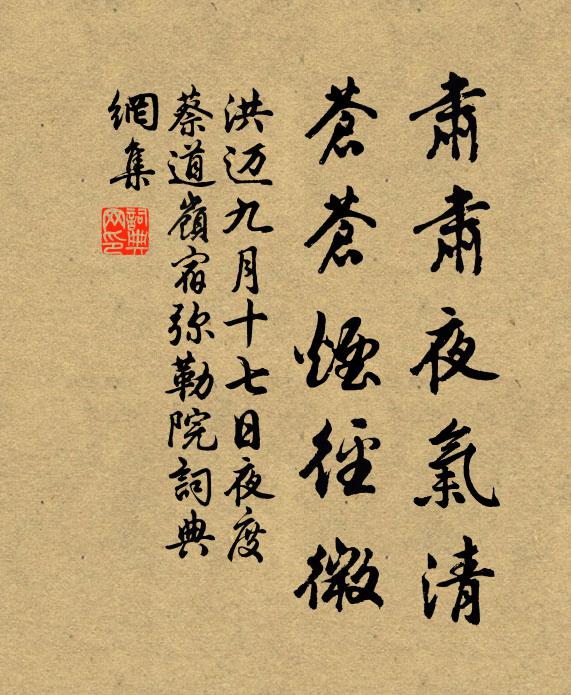 肅肅夜氣清
蒼蒼煙徑微
洪迈九月十七日夜度
蔡道嶺宿弥勒院詞典
網集
詞典網印